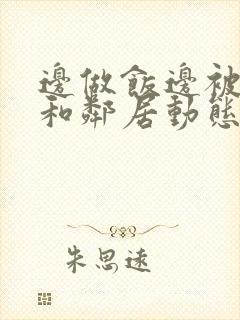 邊做飯邊被
和鄰居動態
朱思遠